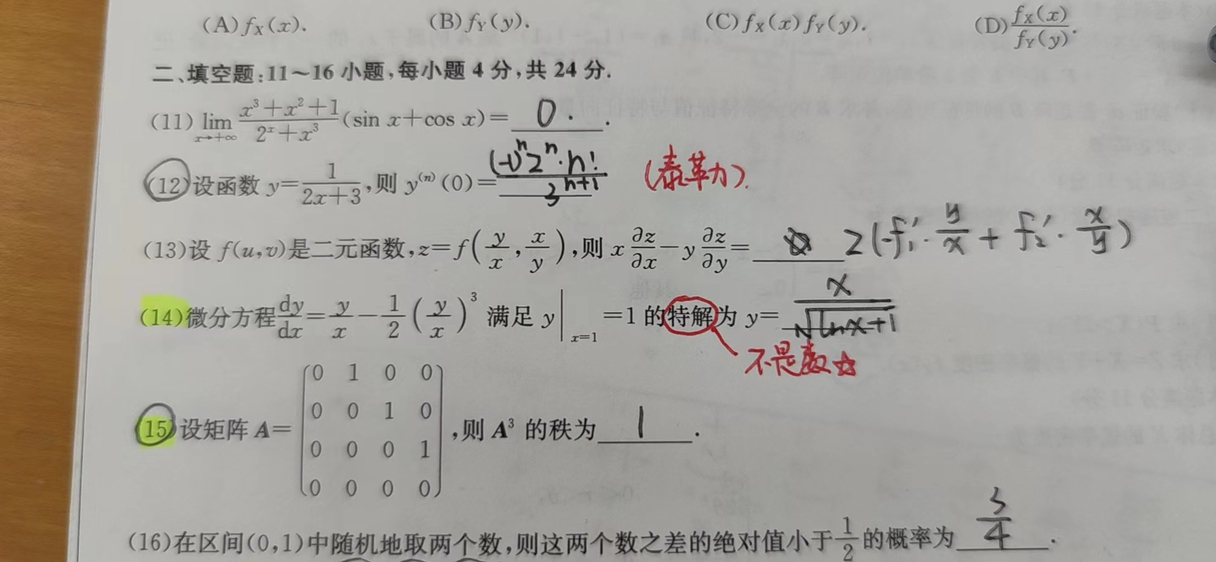 (A) f_X(x). (B) f_Y(y). (C) f_X(x) f_Y(y). (D) f_X(x)/f_Y(y).
二、填空题:11～16小题,每小题4分,共24分.
(11) lim_{x→+∞} (x³+x²+1)/(2ˣ+x³) (sin x+cos x)= 0. .
(12)设函数 y=1/(2x+3),则 y⁽ⁿ⁾(0)= (-1)ⁿ2ⁿ·n!/3ⁿ⁺¹ (泰勒).
(13)设 f(u,v)是二元函数,z=f(y/x, x/y),则 x ∂z/∂x − y ∂z/∂y= 2(-f₁′·y/x + f₂′·x/y)
(14)微分方程 dy/dx = y/x − 1/2 (y/x)³ 满足 y|_{x=1} =1 的特解为 y= x/√(lnx+1)
不是数
(15)设矩阵 A= (0 1 0 0
0 0 1 0
0 0 0 1
0 0 0 0) ,则 A³ 的秩为 1 .
(16)在区间(0,1)中随机地取两个数,则这两个数之差的绝对值小于 1/2 的概率为 3/4 .